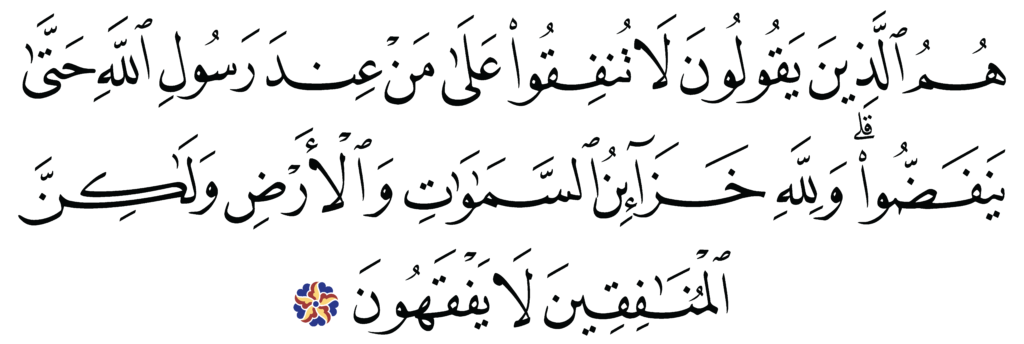 هُمُ ٱلَّذِينَ يَقُولُونَ لَا تُنفِقُوا۟ عَلَىٰ مَنْ عِندَ رَسُولِ ٱللَّهِ حَتَّىٰ
يَنفَضُّوا۟ ۗ وَلِلَّهِ خَزَآئِنُ ٱلسَّمَـٰوَٰتِ وَٱلْأَرْضِ وَلَـٰكِنَّ
ٱلْمُنَـٰفِقِينَ لَا يَفْقَهُونَ